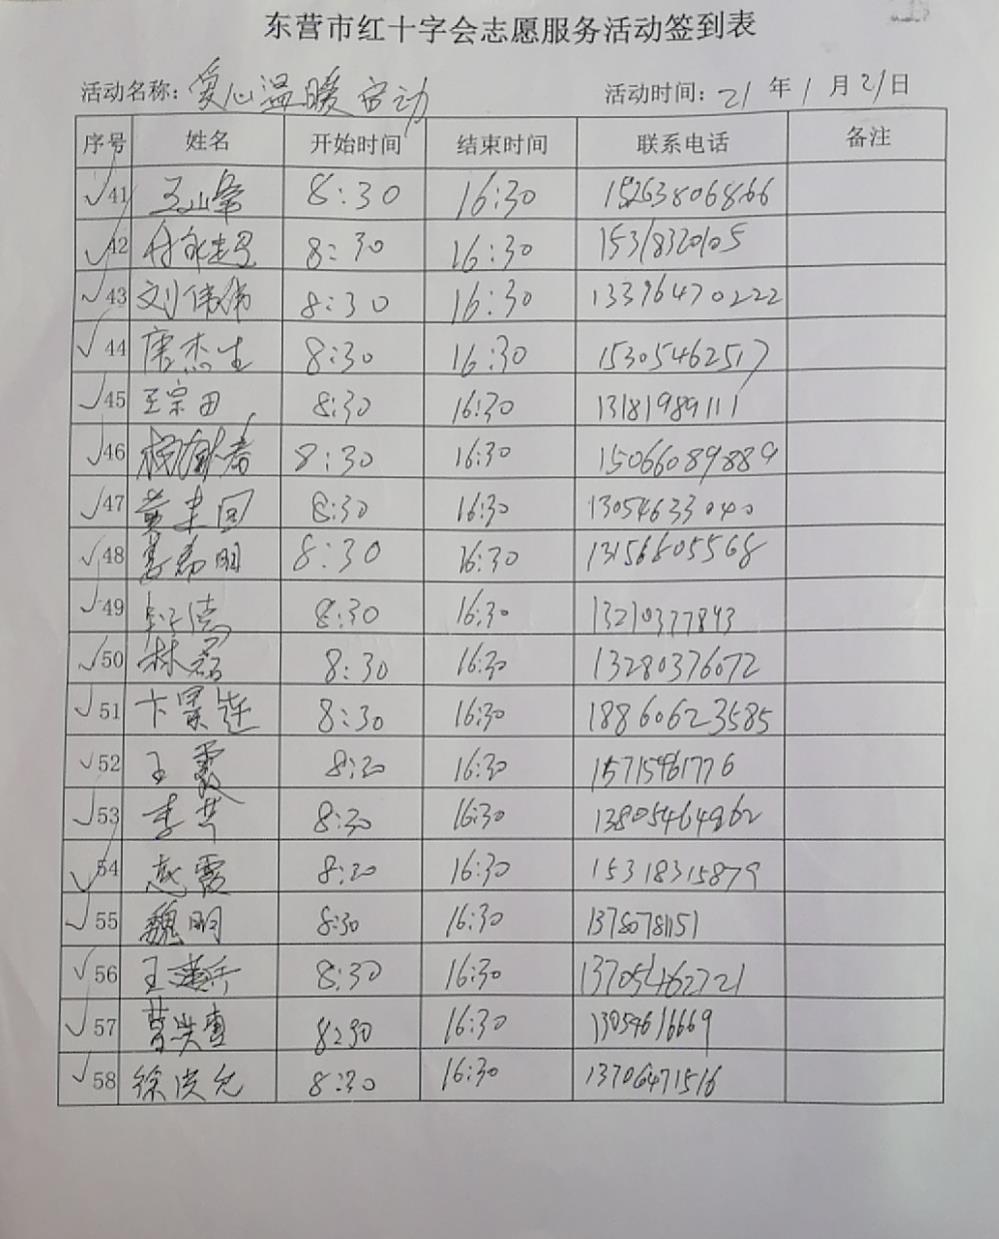 东营市红十字会志愿服务活动签到表
活动名称：爱心温暖 活动时间：21年1月21日
序号 姓名 开始时间 结束时间 联系电话 备注
√41 王山峰 8:30 16:30 15263806866
√42 8:30 16:30 15318320105
√43 刘伟伟 8:30 16:30 13396470222
√44 唐杰生 8:30 16:30 15305462517
√45 王宗田 8:30 16:30 13181989111
√46 8:30 16:30 15066089889
√47 8:30 16:30 13054633040
√48 8:30 16:30 13156605568
√49 8:30 16:30 13210377843
√50 林磊 8:30 16:30 13280376072
√51 卞景莲 8:30 16:30 18860623585
√52 王霞 8:30 16:30 15715461776
√53 李芹 8:30 16:30 13805464962
√54 8:30 16:30 15318315879
√55 魏明 8:30 16:30 13780781151
√56 王建兵 8:30 16:30 13705462721
√57 8:30 16:30 13054616669
√58 徐洪允 8:30 16:30 13706471516